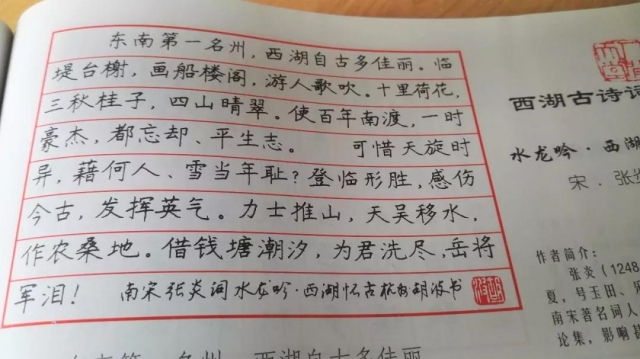 东南第一名州，西湖自古多佳丽。临
堤台榭，画船楼阁，游人歌吹。十里荷花，
三秋桂子，四山晴翠。使百年南渡，一时
豪杰，都忘却、平生志。　　可惜天旋时
异，藉何人、雪当年耻？登临形胜，感伤
今古，发挥英气。力士推山，天吴移水，
作农桑地。借钱塘潮汐，为君洗尽，岳将
军泪！　南宋张炎词水龙吟·西湖怀古
西湖古诗词
水龙吟·西湖
宋．张
作者简介：
张炎（1248
夏，号玉田、
南宋著名词人
论集，影响